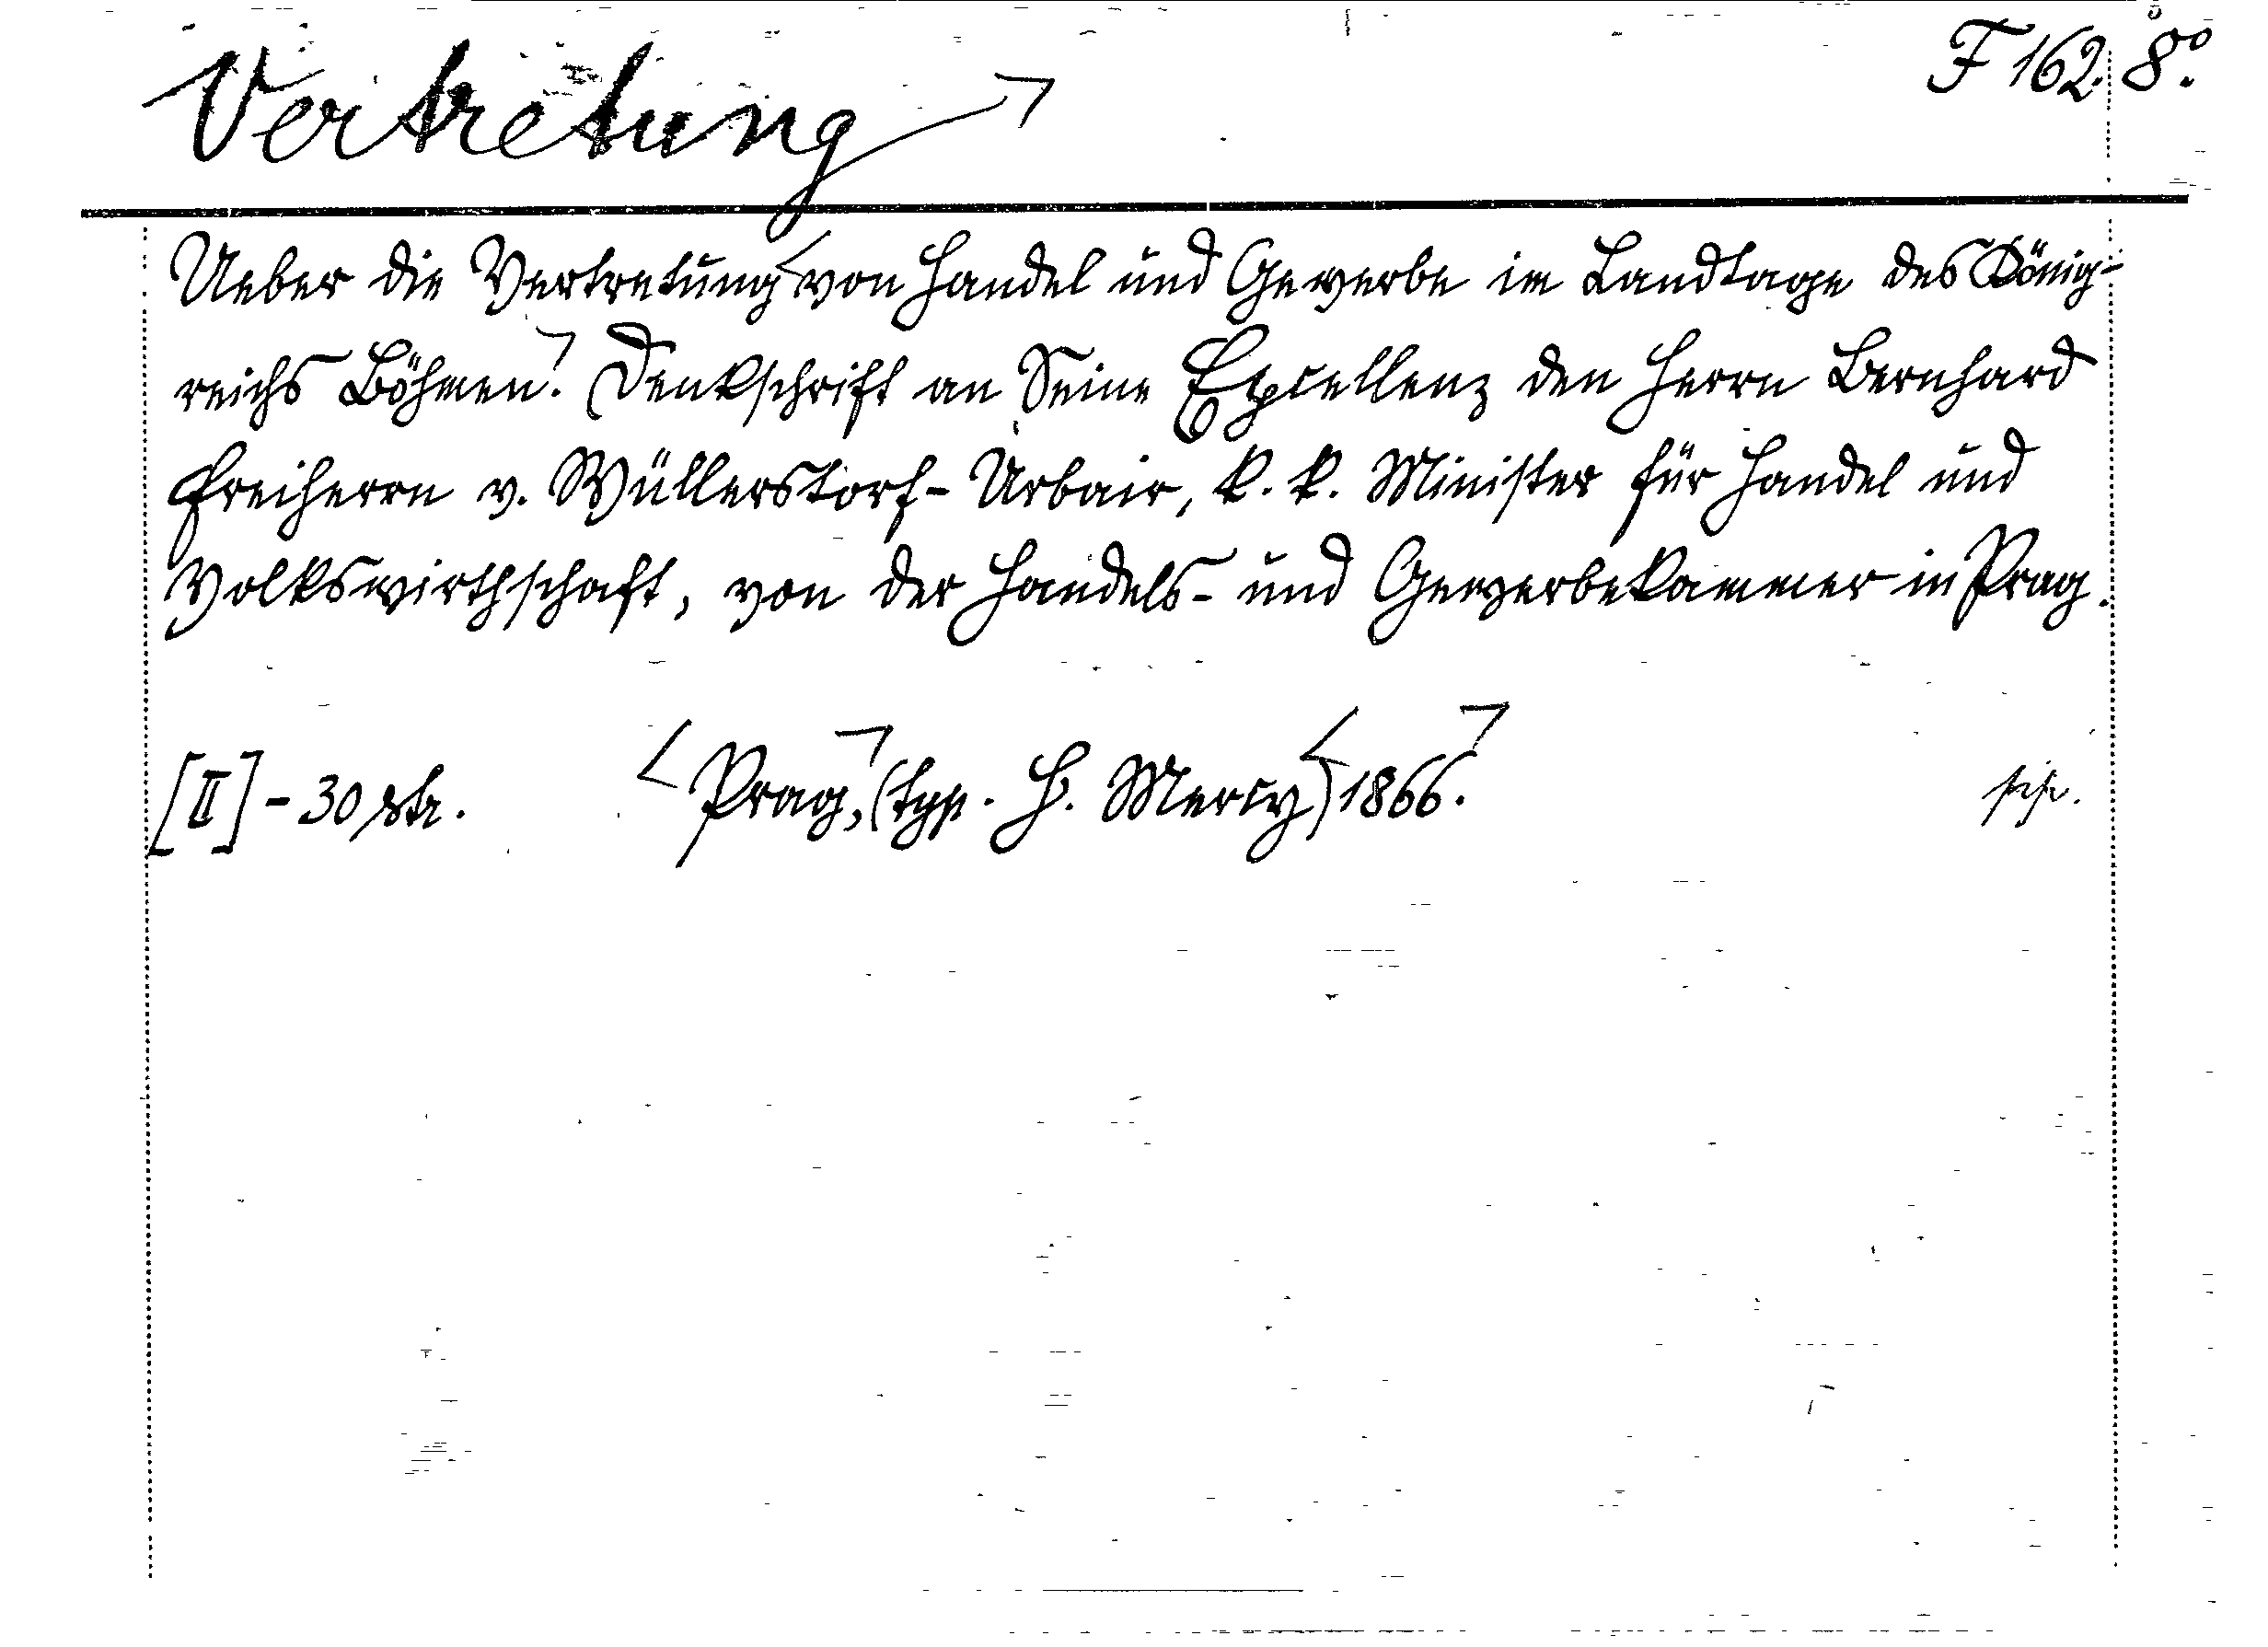 Vertretung
F 162. 8°.
Ueber die Vertretung von Handel und Gewerbe im Landtage des König-
reichs Böhmen. Denkschrift an Seine Excellenz den Herrn Bernhard
Freiherrn v. Wüllerstorf-Urbair, k. k. Minister für Handel und
Volkswirthschaft, von der Handels- und Gewerbekammer in Prag.
[II] - 30 str. Prag, (typ. H. Mercy) 1866.